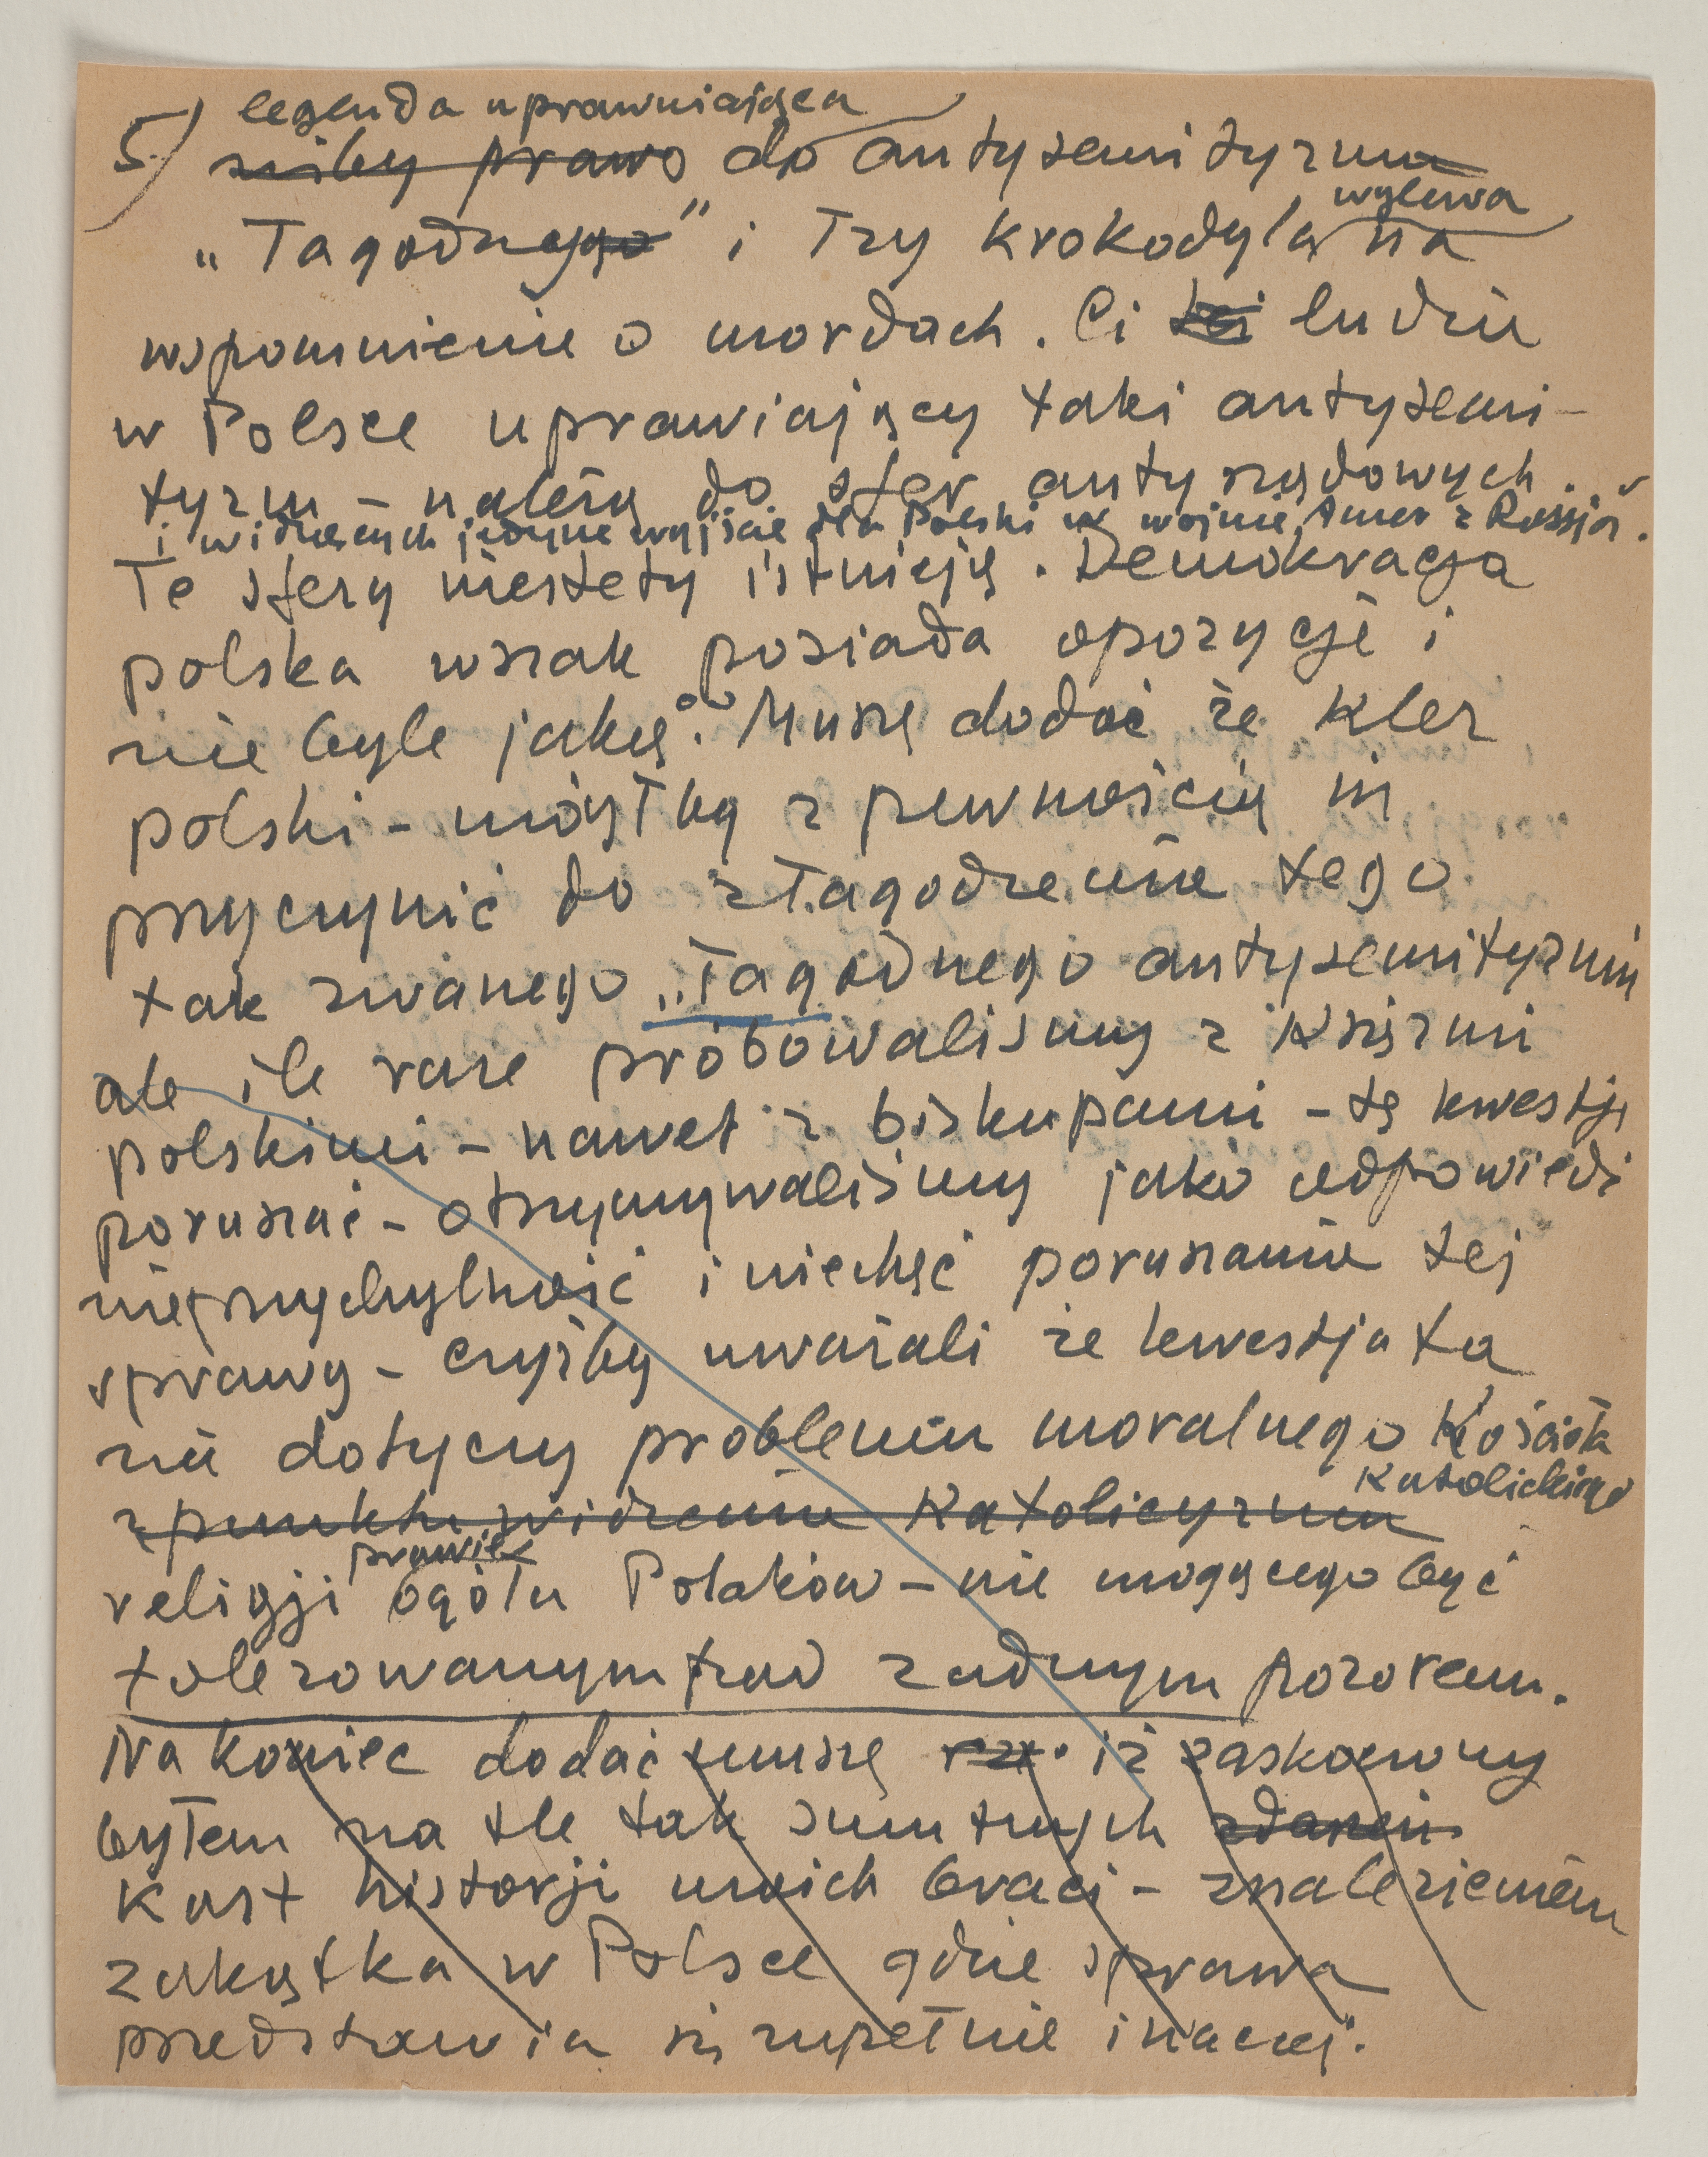 legenda uprawniająca
5.) niby prawo do antysemityzmu
wylewa
„Łagodnego” i łzy krokodyla na
wspomnienie o mordach. Ci też ludzie
w Polsce uprawiający taki antysemi-
tyzm – należą do sfer antyrządowych.
i widzących jedyne wyjście dla Polski w wojnie Amer z Rossją.
Te sfery niestety istnieją. Demokracja
polska wszak posiada opozycję i
nie byle jaką. Muszę dodać że kler
polski – mógłby z pewnością się
przyczynić do złagodzenia tego
tak zwanego „łagodnego antysemityzmu
ale ile razy próbowaliśmy z księżmi
polskimi – nawet z biskupami – tę kwestję
poruszać – otrzymywaliśmy jako odpowiedź
nieprzychylność i niechęć poruszania tej
sprawy – czyżby uważali że kwestja ta
nie dotyczy problemu moralnego Kościoła
Katolickiego
z punktu widzenia Katolicyzmu
prawie
religji ogółu Polaków – nie mogącego być
tolerowanym pod żadnym pozorem.
Na koniec dodać muszę iż zaskoczony
byłem na tle tak smutnych zdarzeń
kart historji moich braci – znalezieniem
zakątka w Polsce gdzie sprawa
przedstawia się zupełnie inaczej.